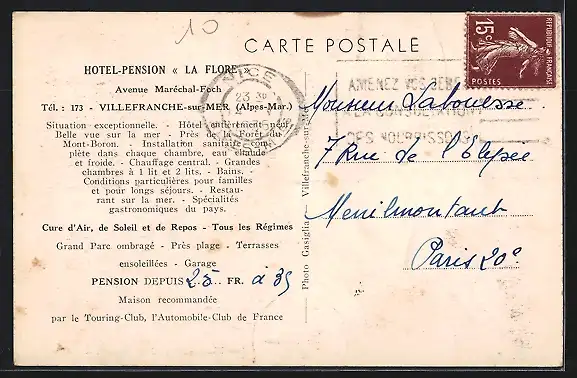 10
CARTE POSTALE
HOTEL-PENSION « LA FLORE »
Avenue Maréchal-Foch
Tél. : 173 - VILLEFRANCHE-sur-MER (Alpes-Mar.)
Situation exceptionnelle. - Hôtel entièrement neuf.
Belle vue sur la mer - Près de la Forêt du
Mont-Boron. - Installation sanitaire com-
plète dans chaque chambre, eau chaude
et froide. - Chauffage central. - Grandes
chambres à 1 lit et 2 lits. - Bains. -
Conditions particulières pour familles
et pour longs séjours. - Restau-
rant sur la mer. - Spécialités
gastronomiques du pays.
Cure d'Air, de Soleil et de Repos - Tous les Régimes
Grand Parc ombragé - Près plage - Terrasses
ensoleillées - Garage
PENSION DEPUIS 25 FR. à 35
Maison recommandée
par le Touring-Club, l'Automobile-Club de France
Photo Gasiglia - Villefranche-sur-Mer
NICE
23
AMENEZ VOS BEBES
A LA CONSULTATION
DES NOURRISSONS
15c
REPUBLIQUE FRANÇAISE
POSTES
Monsieur Labouesse
7 Rue de l'Elysée
Menilmontant
Paris 20e